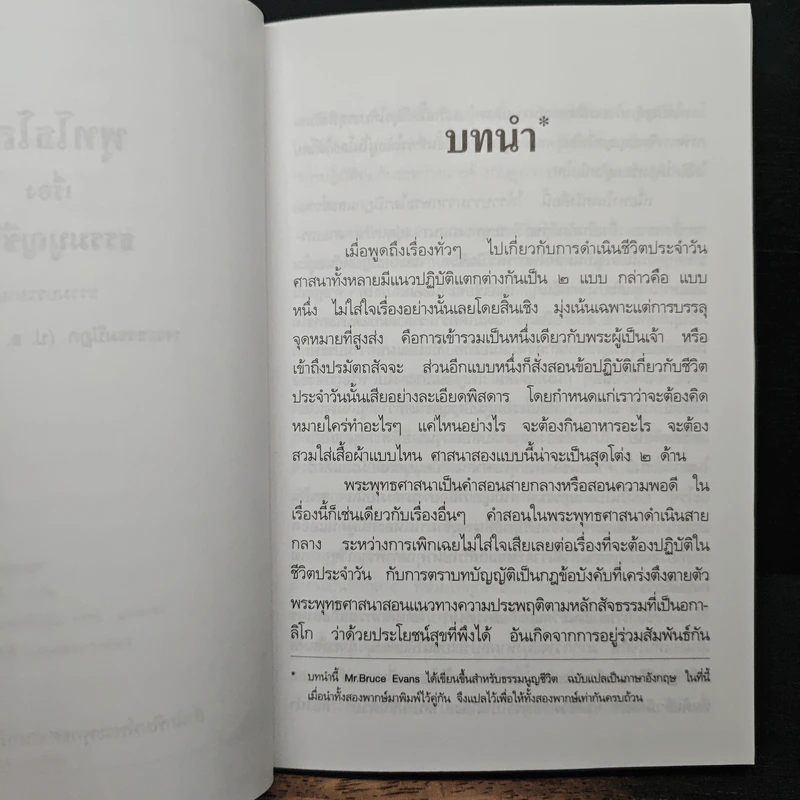 บทนำ*
เมื่อพูดถึงเรื่องทั่วๆ ไปเกี่ยวกับการดำเนินชีวิตประจำวัน
ศาสนาทั้งหลายมีแนวปฏิบัติแตกต่างกันเป็น ๒ แบบ กล่าวคือ แบบ
หนึ่ง ไม่ใส่ใจเรื่องอย่างนั้นเลยโดยสิ้นเชิง มุ่งเน้นเฉพาะแต่การบรรลุ
จุดหมายที่สูงส่ง คือการเข้ารวมเป็นหนึ่งเดียวกับพระผู้เป็นเจ้า หรือ
เข้าถึงปรมัตถสัจจะ ส่วนอีกแบบหนึ่งก็สั่งสอนข้อปฏิบัติเกี่ยวกับชีวิต
ประจำวันนั้นเสียอย่างละเอียดพิสดาร โดยกำหนดแก่เราว่าจะต้องคิด
หมายใคร่ทำอะไรๆ แค่ไหนอย่างไร จะต้องกินอาหารอะไร จะต้อง
สวมใส่เสื้อผ้าแบบไหน ศาสนาสองแบบนี้น่าจะเป็นสุดโต่ง ๒ ด้าน
พระพุทธศาสนาเป็นคำสอนสายกลางหรือสอนความพอดี ใน
เรื่องนี้ก็เช่นเดียวกับเรื่องอื่นๆ คำสอนในพระพุทธศาสนาดำเนินสาย
กลาง ระหว่างการเพิกเฉยไม่ใส่ใจเสียเลยต่อเรื่องที่จะต้องปฏิบัติใน
ชีวิตประจำวัน กับการตราบทบัญญัติเป็นกฎข้อบังคับที่เคร่งตึงตายตัว
พระพุทธศาสนาสอนแนวทางความประพฤติตามหลักสัจธรรมที่เป็นอกา-
ลิโก ว่าด้วยประโยชน์สุขที่พึงได้ อันเกิดจากการอยู่ร่วมสัมพันธ์กัน
* บทนำนี้ Mr.Bruce Evans ได้เขียนขึ้นสำหรับธรรมนูญชีวิต ฉบับแปลเป็นภาษาอังกฤษ ในที่นี้
เมื่อนำทั้งสองพากษ์มาพิมพ์ไว้คู่กัน จึงแปลไว้เพื่อให้ทั้งสองพากษ์เท่ากันครบถ้วน